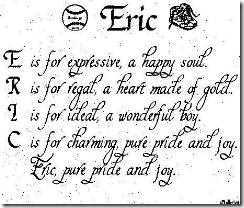 Eric
E is for expressive, a happy soul.
R is for regal, a heart made of gold.
I is for ideal, a wonderful boy.
C is for charming, pure pride and joy.
Eric, pure pride and joy.